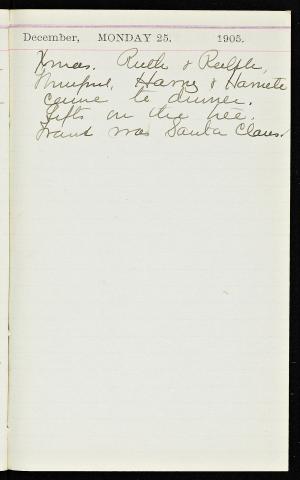 December, MONDAY 25. 1905.
Xmas. Ruth & Ralph,
Harry & Harriete
came to dinner.
Gifts on the tree.
was Santa Claus.